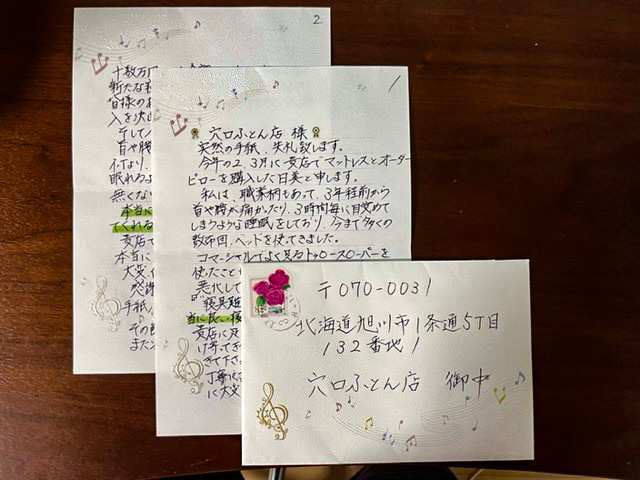 2
十数万円
新たな
皆様のお
入を決
そして
首や腰
眠れるよ
無くない
本当に
てくれる
貴店で
本当に
大変
感謝
手紙
その
また
1
穴口ふとん店 様
突然の手紙、失礼致します。
今年の2、3月に貴店でマットレスとオーダー
ピローを購入した日美と申します。
私は、職業柄もあって、3年程前から
首や腰が痛かったり、3時間毎に目覚めて
しまうような睡眠をしており、今まで多くの
敷布団、ベッドを使ってきました。
コマーシャルでよく見るトゥルースリーパーを
使ったこと
悪化して
「寝具難
当に良い寝
貴店に足
け寄ってき
さて下さ
丁寧に
に大変
〒070-0031
北海道旭川市1条通5丁目
132番地1
穴口ふとん店 御中